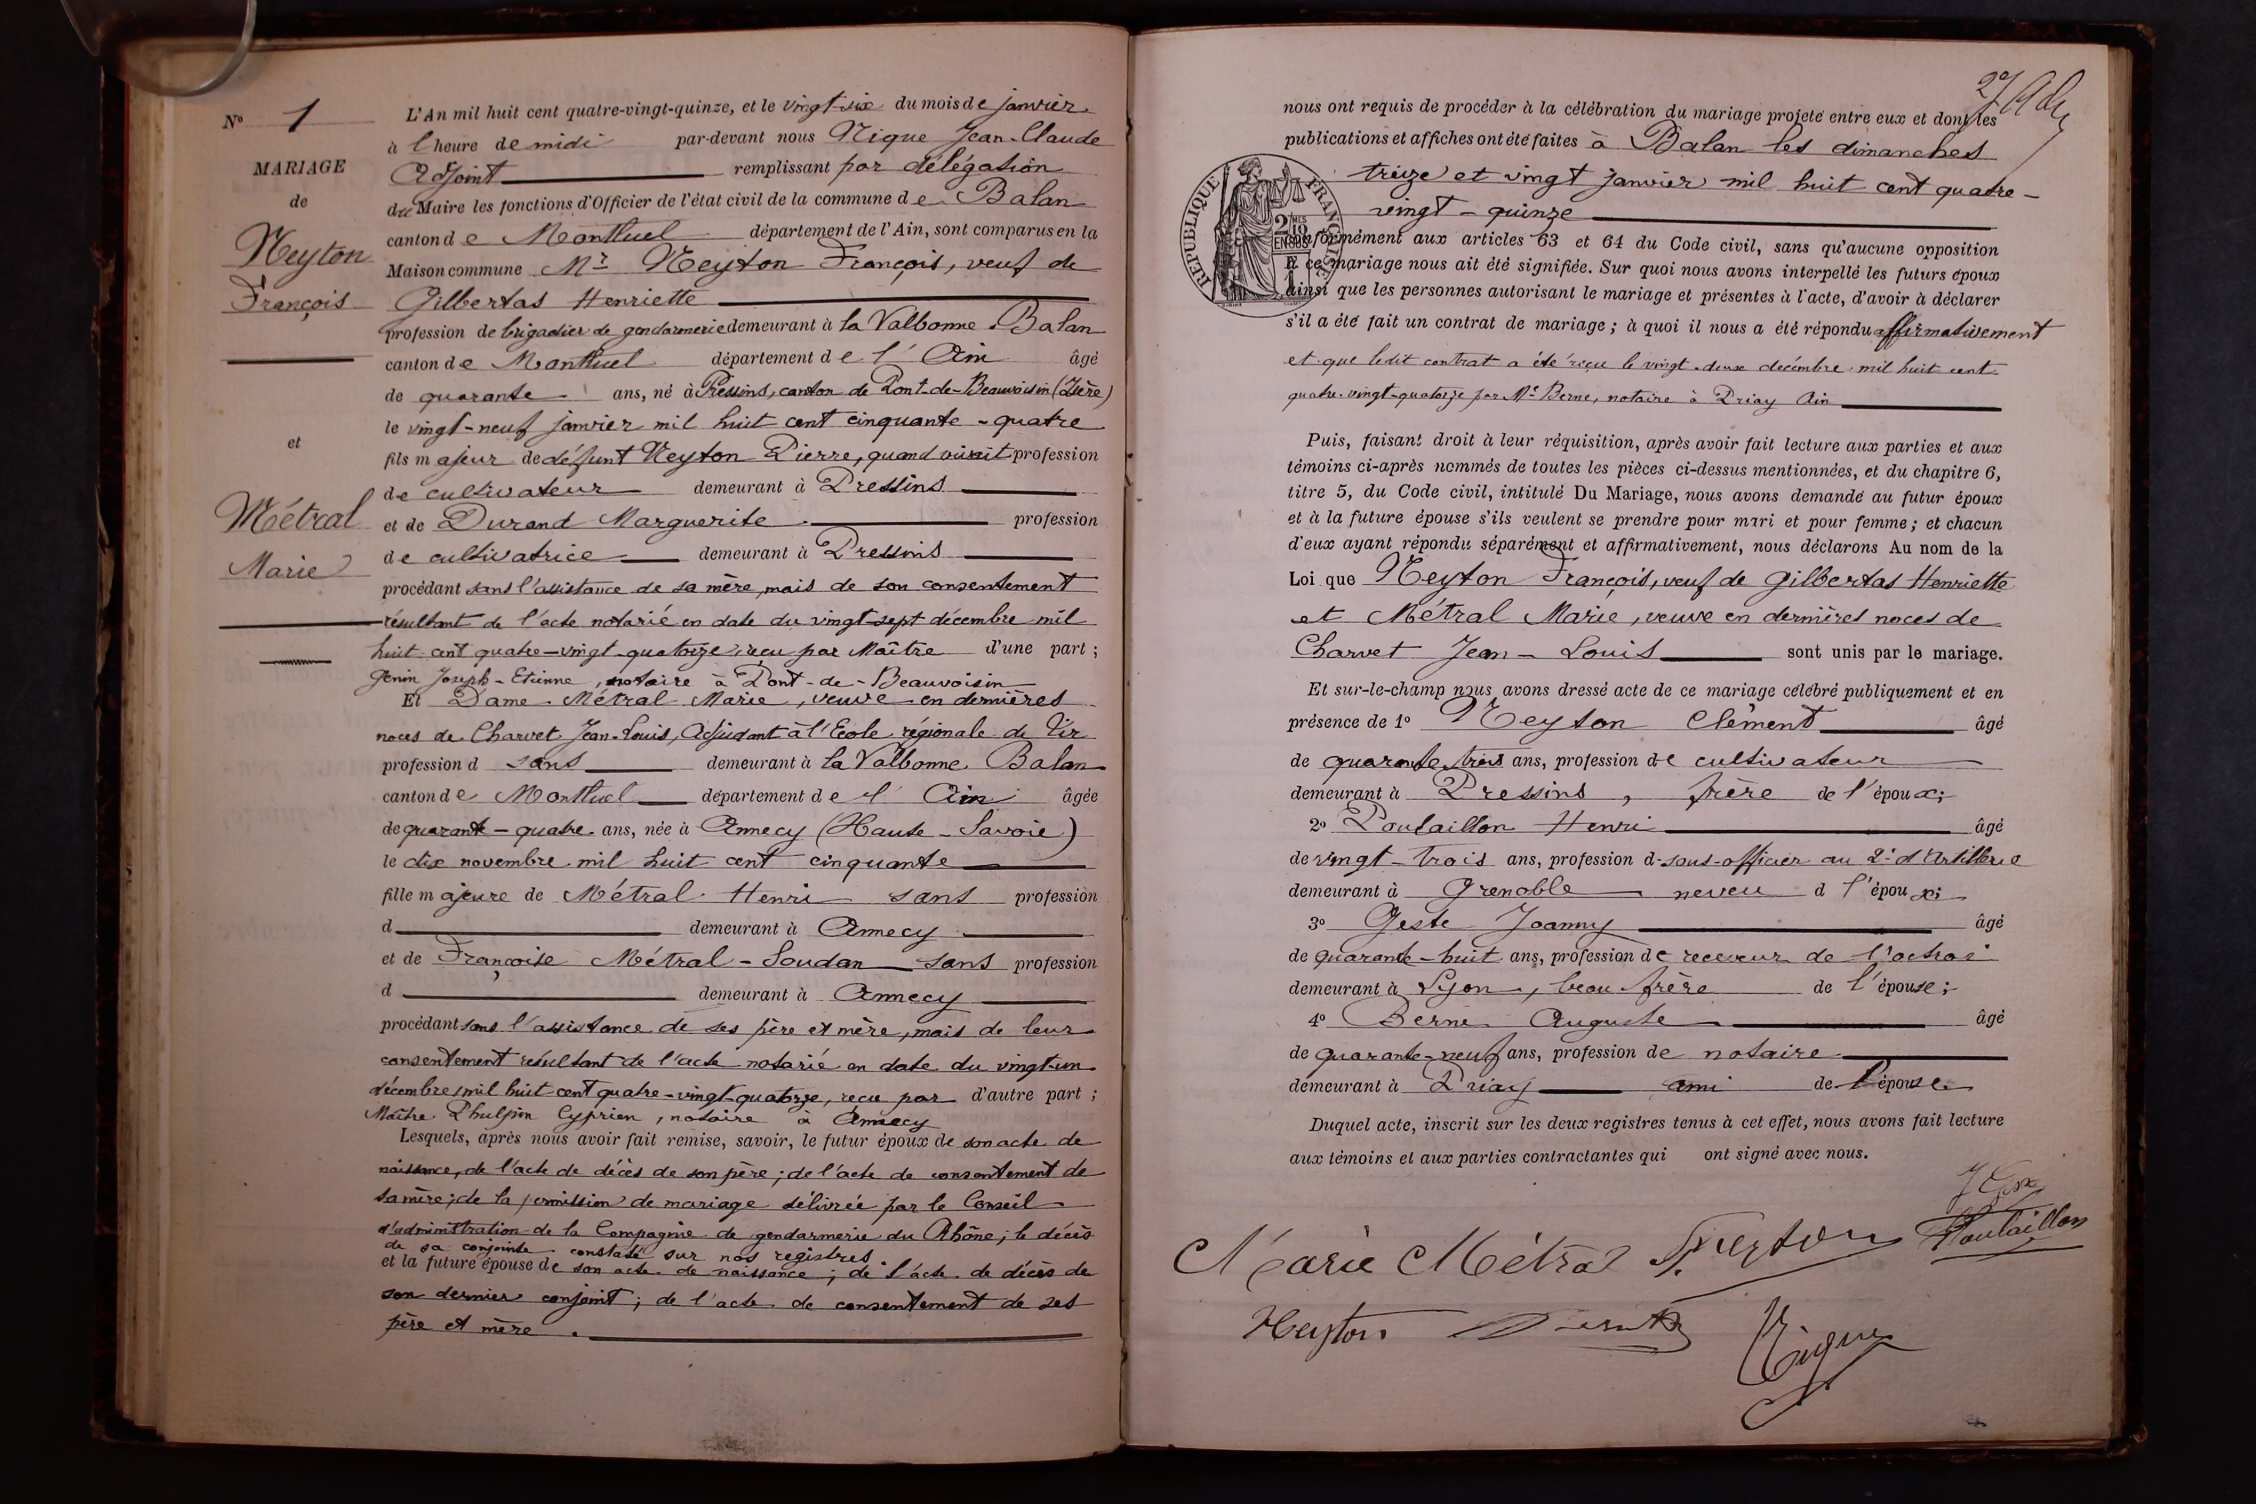 Nº 1
MARIAGE
de
Neyton
François
et
Métral
Marie
L'An mil huit cent quatre-vingt-quinze, et le vingt-six du mois de janvier
à l'heure de midi par-devant nous Nique Jean-Claude
Adjoint remplissant par délégation
du Maire les fonctions d'Officier de l'état civil de la commune de Balan
canton de Montluel département de l'Ain, sont comparus en la
Maison commune Mr Neyton François, veuf de
Gilbertas Henriette
profession de brigadier de gendarmerie demeurant à la Valbonne. Balan
canton de Montluel département de l'Ain âgé
de quarante ans, né à Pressins, canton de Pont-de-Beauvoisin (Isère)
le vingt-neuf janvier mil huit cent cinquante-quatre
fils majeur de défunt Neyton Pierre, quand vivait profession
de cultivateur demeurant à Pressins
et de Durand Marguerite profession
de cultivatrice demeurant à Pressins
procédant sans l'assistance de sa mère, mais de son consentement
résultant de l'acte notarié en date du vingt-sept décembre mil
huit cent quatre-vingt-quatorze, reçu par Maître d'une part ;
Genin Joseph-Etienne, notaire à Pont-de-Beauvoisin
Et Dame Métral Marie, veuve en dernières
noces de Charvet Jean-Louis, Adjudant à l'Ecole régionale de Tir
profession d sans demeurant à la Valbonne. Balan
canton de Montluel département de l'Ain âgée
de quarante-quatre ans, née à Annecy (Haute-Savoie)
le dix novembre mil huit cent cinquante
fille majeure de Métral Henri sans profession
d demeurant à Annecy
et de Françoise Métral-Soudan sans profession
d demeurant à Annecy
procédant sans l'assistance de ses père et mère, mais de leur
consentement résultant de l'acte notarié en date du vingt-un
décembre mil huit cent quatre-vingt-quatorze, reçu par d'autre part ;
Maître Phulpin Cyprien, notaire à Annecy
Lesquels, après nous avoir fait remise, savoir, le futur époux de son acte de
naissance, de l'acte de décès de son père ; de l'acte de consentement de
sa mère ; de la permission de mariage délivrée par le Conseil
d'administration de la Compagnie de gendarmerie du Rhône ; le décès
de sa conjointe constaté sur nos registres.
et la future épouse de son acte de naissance ; de l'acte de décès de
son dernier conjoint ; de l'acte de consentement de ses
père et mère.
nous ont requis de procéder à la célébration du mariage projeté entre eux et dont les
publications et affiches ont été faites à Balan les dimanches
treize et vingt janvier mil huit cent quatre-
vingt-quinze
RÉPUBLIQUE FRANÇAISE
Conformément aux articles 63 et 64 du Code civil, sans qu'aucune opposition
à ce mariage nous ait été signifiée. Sur quoi nous avons interpellé les futurs époux
ainsi que les personnes autorisant le mariage et présentes à l'acte, d'avoir à déclarer
s'il a été fait un contrat de mariage ; à quoi il nous a été répondu affirmativement
et que ledit contrat a été reçu le vingt-deux décembre mil huit cent
quatre-vingt-quatorze par Me Berne, notaire à Priay Ain
Puis, faisant droit à leur réquisition, après avoir fait lecture aux parties et aux
témoins ci-après nommés de toutes les pièces ci-dessus mentionnées, et du chapitre 6,
titre 5, du Code civil, intitulé Du Mariage, nous avons demandé au futur époux
et à la future épouse s'ils veulent se prendre pour mari et pour femme ; et chacun
d'eux ayant répondu séparément et affirmativement, nous déclarons Au nom de la
Loi que Neyton François, veuf de Gilbertas Henriette
et Métral Marie, veuve en dernières noces de
Charvet Jean-Louis sont unis par le mariage.
Et sur-le-champ nous avons dressé acte de ce mariage célébré publiquement et en
présence de 1º Neyton Clément âgé
de quarante-trois ans, profession de cultivateur
demeurant à Pressins, frère de l'époux ;
2º Poulaillon Henri âgé
de vingt-trois ans, profession d sous-officier au 2e d'Artillerie
demeurant à Grenoble neveu d l'époux ;
3º Geste Joanny âgé
de quarante-huit ans, profession de receveur de l'octroi
demeurant à Lyon, beau frère de l'épouse ;
4º Berne Auguste âgé
de quarante-neuf ans, profession de notaire
demeurant à Priay ami de l'épouse.
Duquel acte, inscrit sur les deux registres tenus à cet effet, nous avons fait lecture
aux témoins et aux parties contractantes qui ont signé avec nous.
Marie Métral Neyton Poulaillon
Neyton Nique